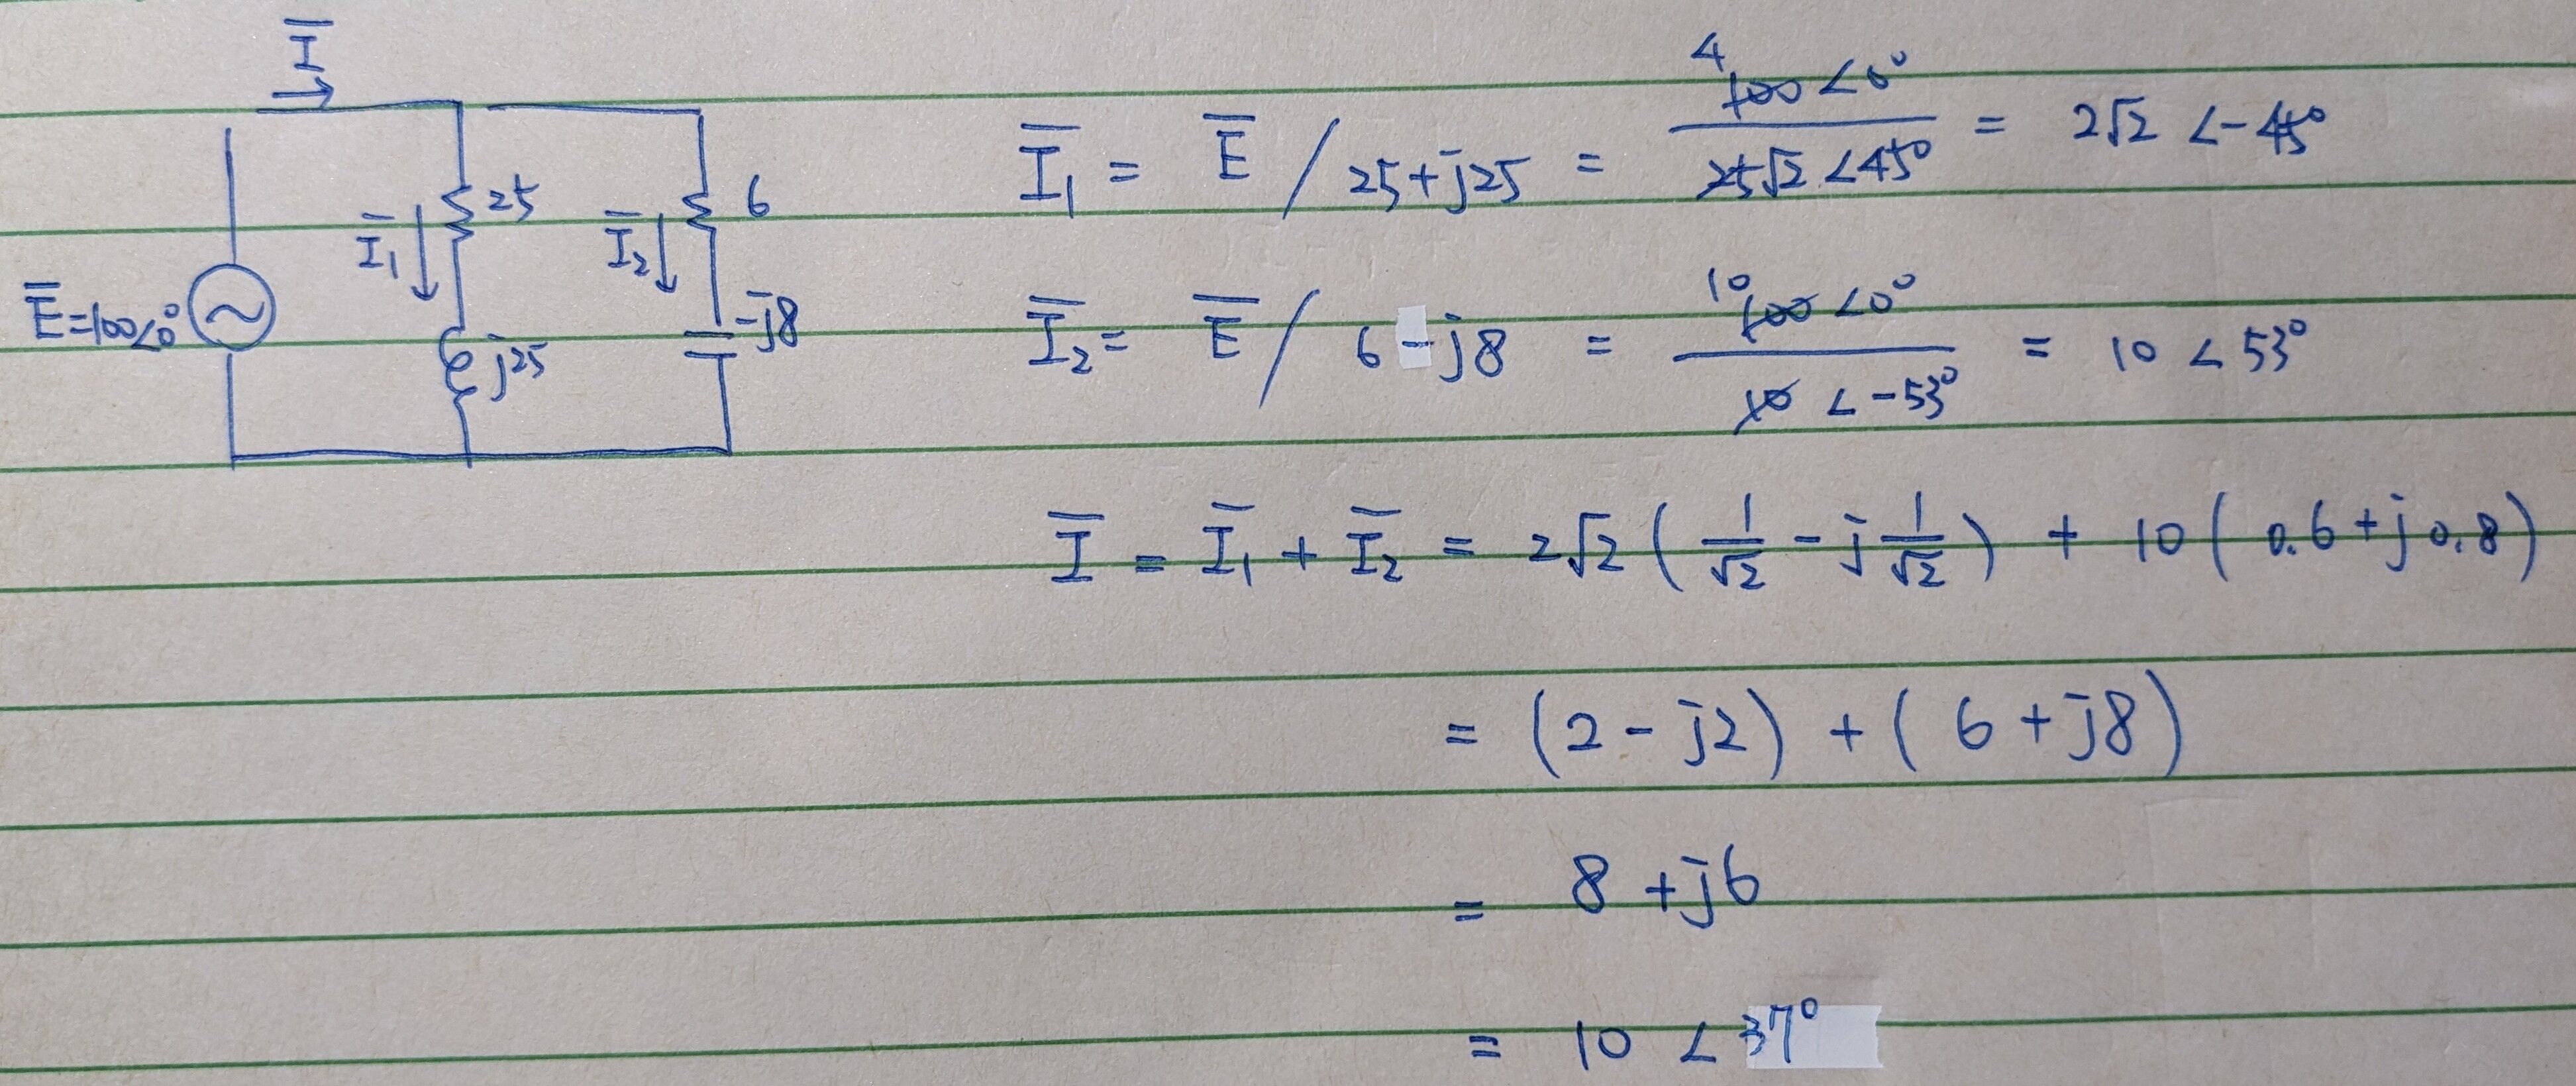 I̅
→
E̅=100∠0°
I̅₁ ↓ 25
j25
I̅₂ ↓ 6
-j8
I̅₁ = E̅ / 25+j25 = 4 100∠0° / 25√2 ∠45° = 2√2 ∠-45°
I̅₂ = E̅ / 6-j8 = 10 100∠0° / 10 ∠-53° = 10 ∠53°
I̅ = I̅₁ + I̅₂ = 2√2 ( 1/√2 - j 1/√2 ) + 10 ( 0.6+j0.8 )
= (2-j2) + ( 6+j8 )
= 8+j6
= 10 ∠37°